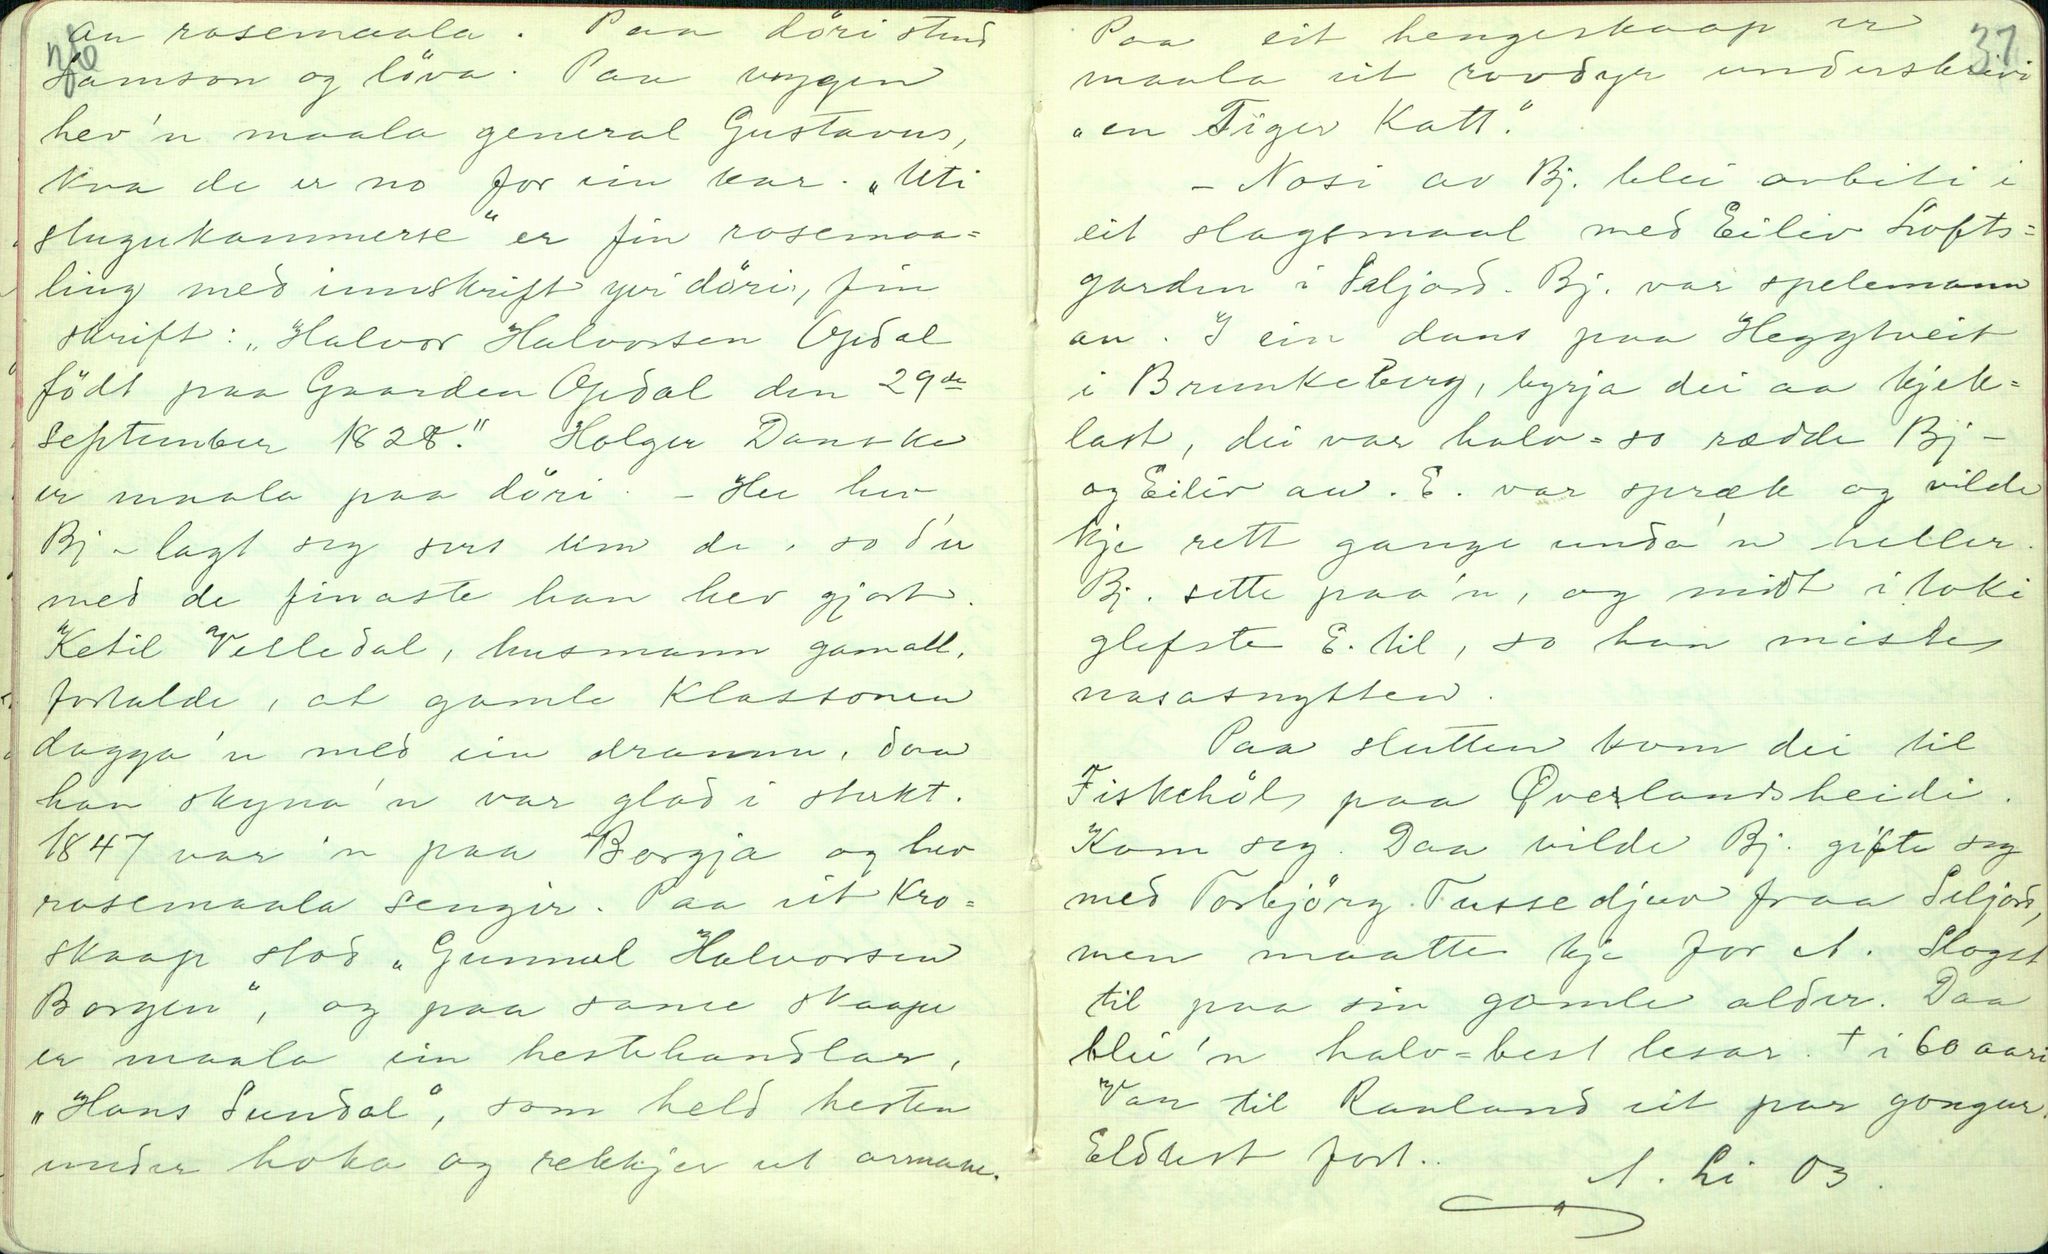 au rosemaala. Paa döri stend
Samson og löva. Paa veggen
hev'n maala general Gustavus,
kva de er no for ein kar. „Uti
stugukammerse" er fin rosemaa=
ling med innskrift yvi döri, fin
skrift: „Halvor Halvorsen Opdal
födt paa Gaarden Opdal den 29de
September 1828." Holger Danske
er maala paa döri. – Her hev
Bj – lagt seg sers um de, so d'er
med de finaste han hev gjort.
Ketil Velledal, husmann gamall,
fortalde, at gamle Klassonen
dagga'n med ein dramm, daa
han skyna'n var glad i sterkt.
1847 var 'n paa Borgja og hev
rosemaala sengir. Paa eit Kro=
skaap stod „Gunnul Halvorsen
Borgen", og paa same skaape
er maala ein hestehandlar,
„Hans Sundal", som held hesten
under hoka og rekkjer ut armane.
37
Paa eit hengeskaap er
maala eit rovdyr underskrivi
„en Tiger Katt".
– Nosi av Bj. blei avbiti i
eit slagsmaal med Eiliv Lofts=
garden i Seljord. Bj. var spelemann
au. I ein dans paa Heggtveit
i Brunkeberg, byrja dei aa kjek=
last, dei var halv=so rædde Bj –
og Eiliv au. E. var spræk og vilde
kje rett gange unda'n heller.
Bj. sette paa'n, og midt i toki
glefste E. til, so han miste
nasasnytten.
Paa slutten kom dei til
Fiskehöl paa Øverlandsheidi.
Kom seg. Daa vilde Bj. gifte seg
med Torbjörg Tussedjuv fraa Seljord,
men maatte kje for A. Slogst
til paa sin gamle alder. Daa
blei'n halv=best lesar. † i 60 aari
Var til Rauland eit par gongur.
Eldhest fort..
A. Li 03.